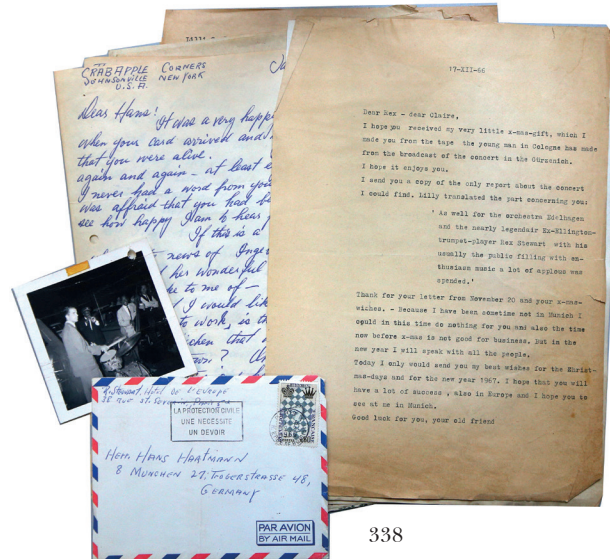 CRABAPPLE CORNERS
JOHNSONVILLE NEW YORK
U.S.A.
Dear Hans! It was a very happy
when your card arrived and
that you were alive.
again and again - at least
I never had a word from you
was afraid that you had
see how happy I am to hear
If this is a
news of
her wonderful
to me of -
I would lik
to work, is th
17-XII-66
Dear Rex - dear Claire,
I hope you received my very little x-mas-gift, which I
made you from the tape the young man in Cologne has made
from the broadcast of the concert in the Gürzenich.
I hope it enjoys you.
I send you a copy of the only report about the concert
I could find. Lilly translated the part concerning you:
' As well for the orchestra Edelhagen
and the nearly legendair Ex-Ellington-
trumpet-player Rex Stewart with his
usually the public filling with en-
thusiasm music a lot of applous was
spended.'
Thank for your letter from November 20 and your x-mas-
wishes. - Because I have been sometime not in Munich I
could in this time do nothing for you and also the time
now before x-mas is not good for business. but in the
new year I will speak with all the people.
Today I only would send you my best wishes for the Christ-
mas-days and for the new year 1967. I hope that you will
have a lot of success , also in Europe and I hope you to
see at us in Munich.
Good luck for you, your old friend
HOTEL DE L'EUROPE
LA PROTECTION CIVILE
UNE NÉCESSITÉ
UN DEVOIR
HERR HANS HARTMANN
8 MUNCHEN 27, TROGERSTRASSE 48,
GERMANY
PAR AVION
BY AIR MAIL
338